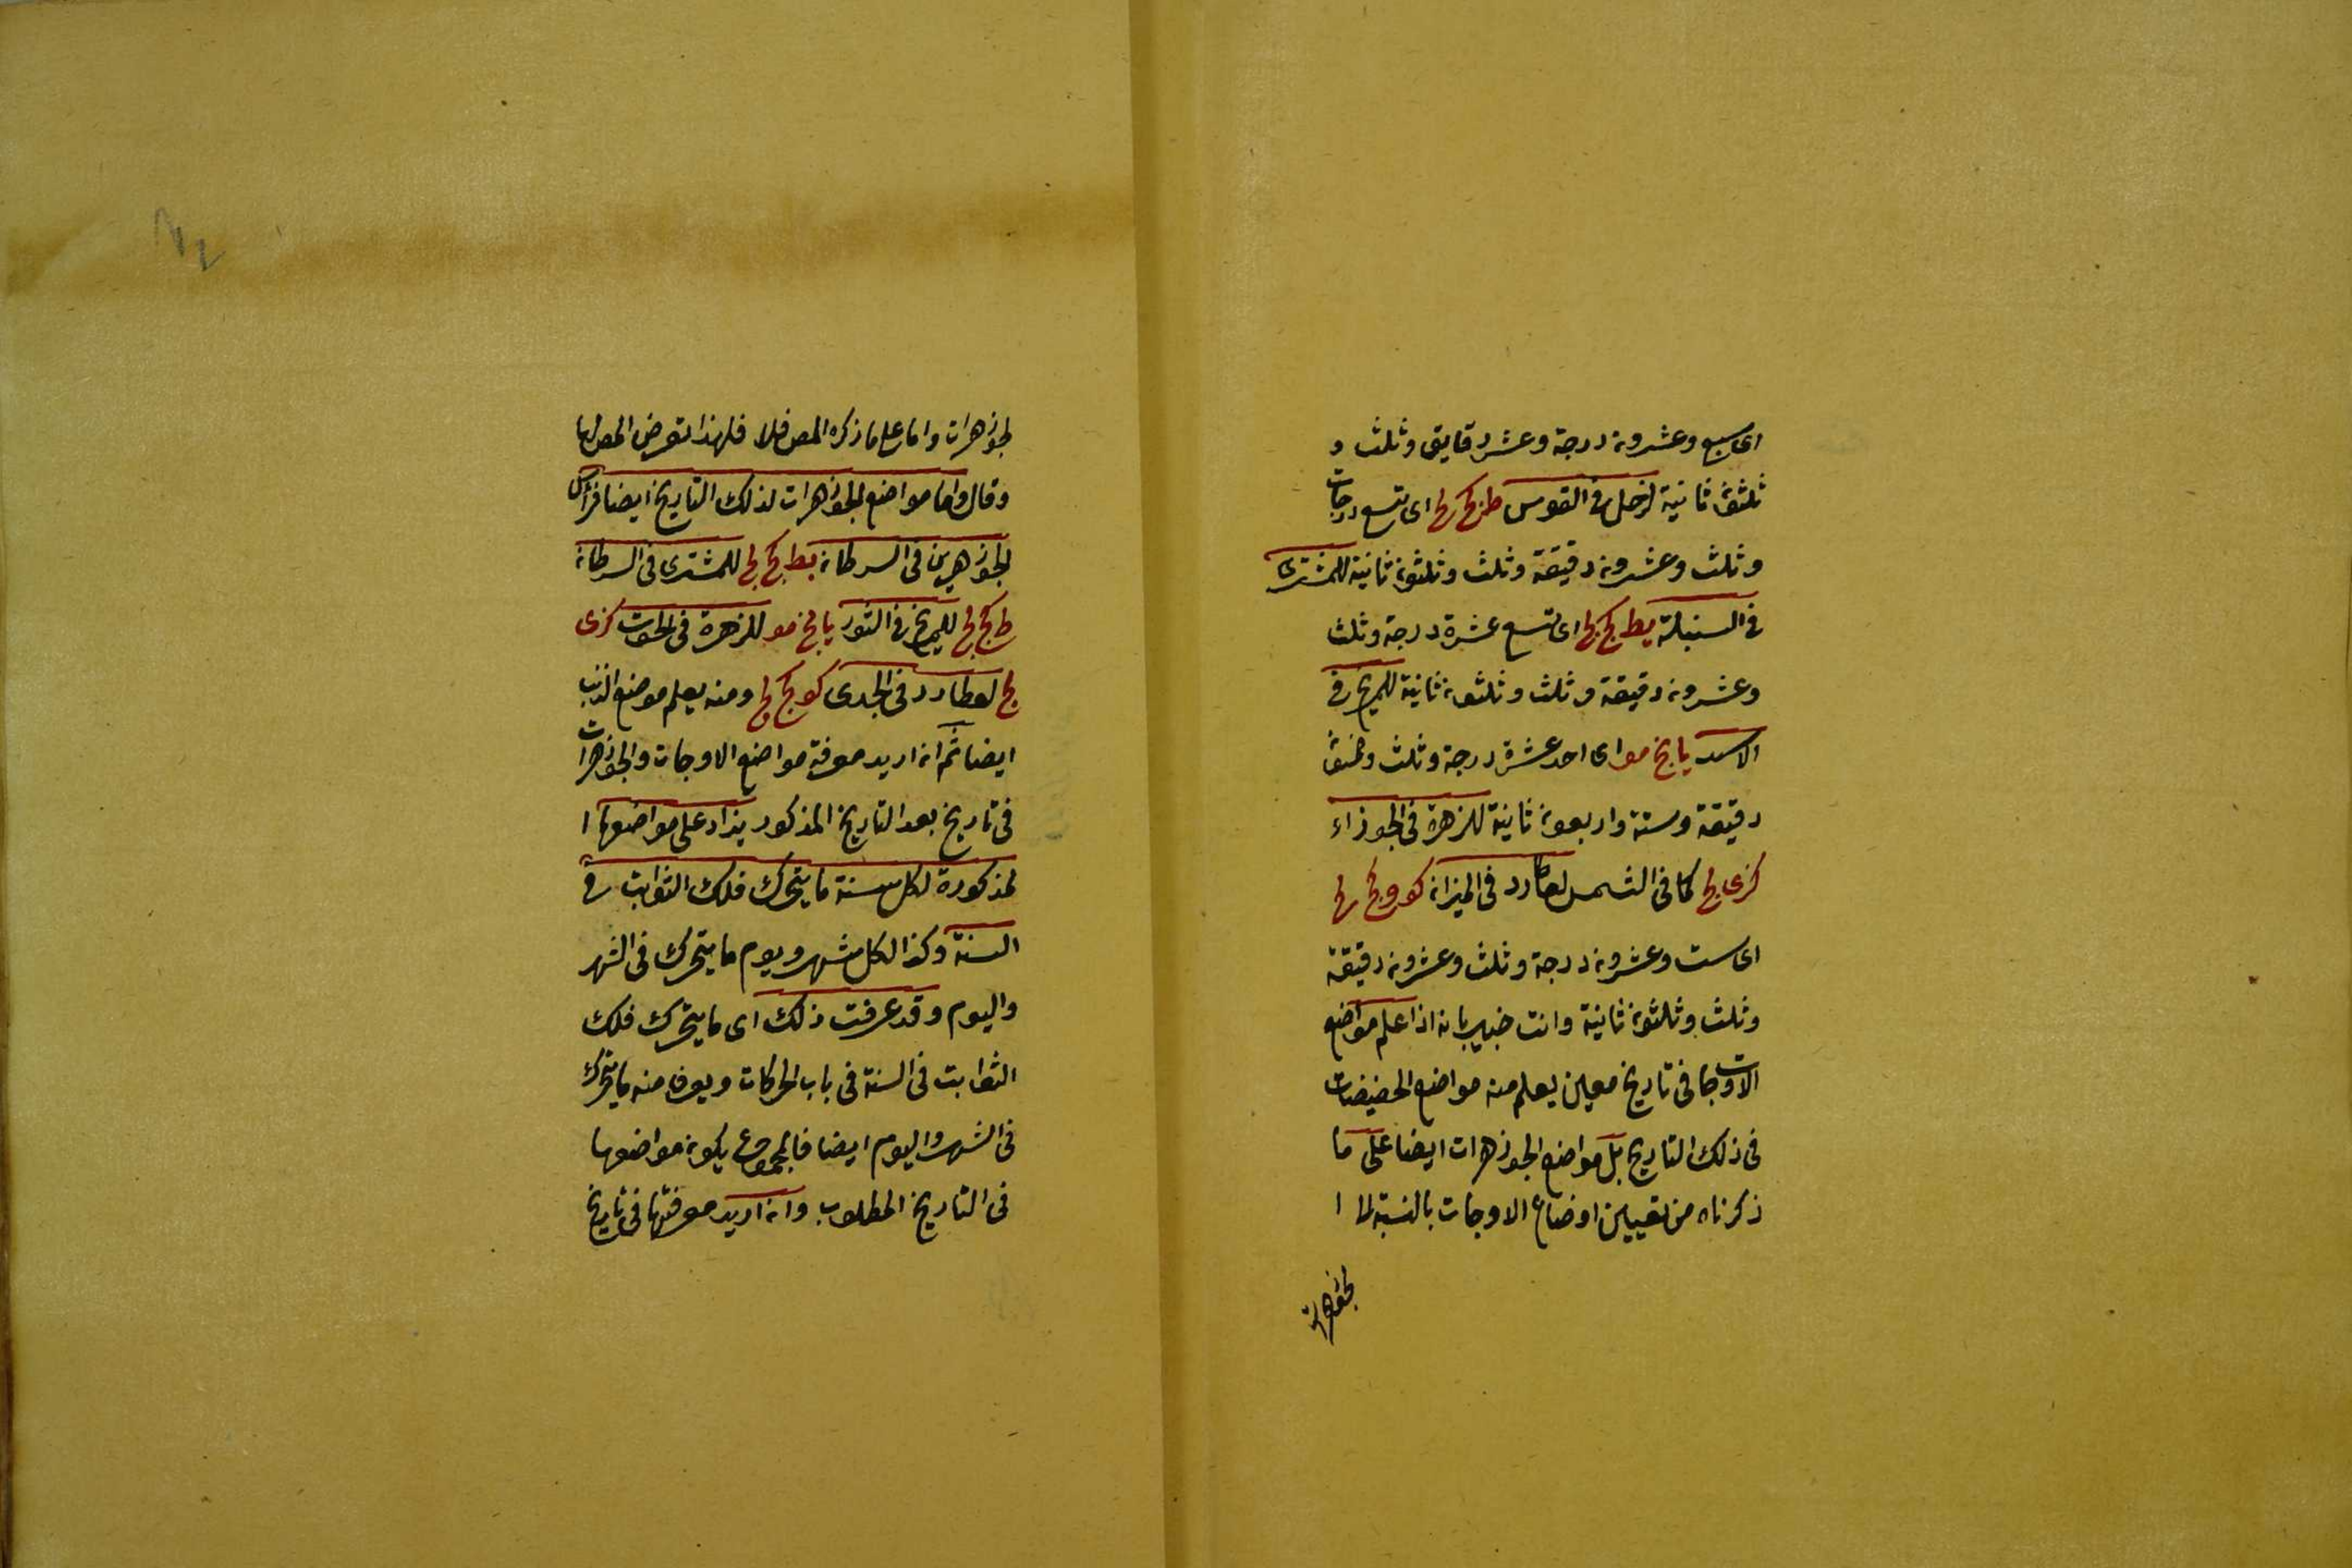 اى سبع وعشرون درجة وعشر دقايق وثلث و
ثلثون ثانية لزحل فى القوس ط كج لج اى تسع درجات
وثلث وعشرون دقيقة وثلث وثلثون ثانية للمشترى
فى السنبلة يط كج لج اى تسع عشرة درجة وثلث
وعشرون دقيقة وثلث وثلثون ثانية للمريخ فى
الاسد يا نج مو اى احد عشرة درجة وثلث وخمسون
دقيقة وستة واربعون ثانية للزهرة فى الجوزاء
كز ى لج كما فى الشمس لعطارد فى الميزان كو كج لج
اى ست وعشرون درجة وثلث وعشرون دقيقة
وثلث وثلثون ثانية وانت خبير بانه اذا علم مواضع
الاوجات فى تاريخ معين يعلم منه مواضع الحضيضات
فى ذلك التاريخ بل مواضع الجوزهرات ايضا على ما
ذكرناه من تعيين اوضاع الاوجات بالنسبة لا ا
لجوزهرات
لجوزهرات واما على ما ذكره المص فلا فلهذا تعرض المص لها
وقال واما مواضع الجوزهرات لذلك التاريخ ايضا فراس
الجوزهرين فى السرطان يط كج لج للمشترى فى السرطان
ط كج لج للمريخ فى الثور يا نج مو للزهرة فى الحوت كز ى
لج لعطارد فى الجدى كو كج لج ومنه يعلم موضع الذنب
ايضا ثم ان اريد معرفة مواضع الاوجات والجوزهرات
فى تاريخ بعد التاريخ المذكور يزاد على مواضعها ا
لمذكورة لكل سنة ما يتحرك فلك الثوابت فى
السنة وكذا لكل شهر ويوم ما يتحرك فى الشهر
واليوم وقد عرفت ذلك اى ما يتحرك فلك
الثوابت فى السنة فى باب الحركات ويعرف منه ما يتحرك
فى الشهر واليوم ايضا فالمجموع يكون مواضعها
فى التاريخ المطلوب وان اريد معرفتها فى تاريخ